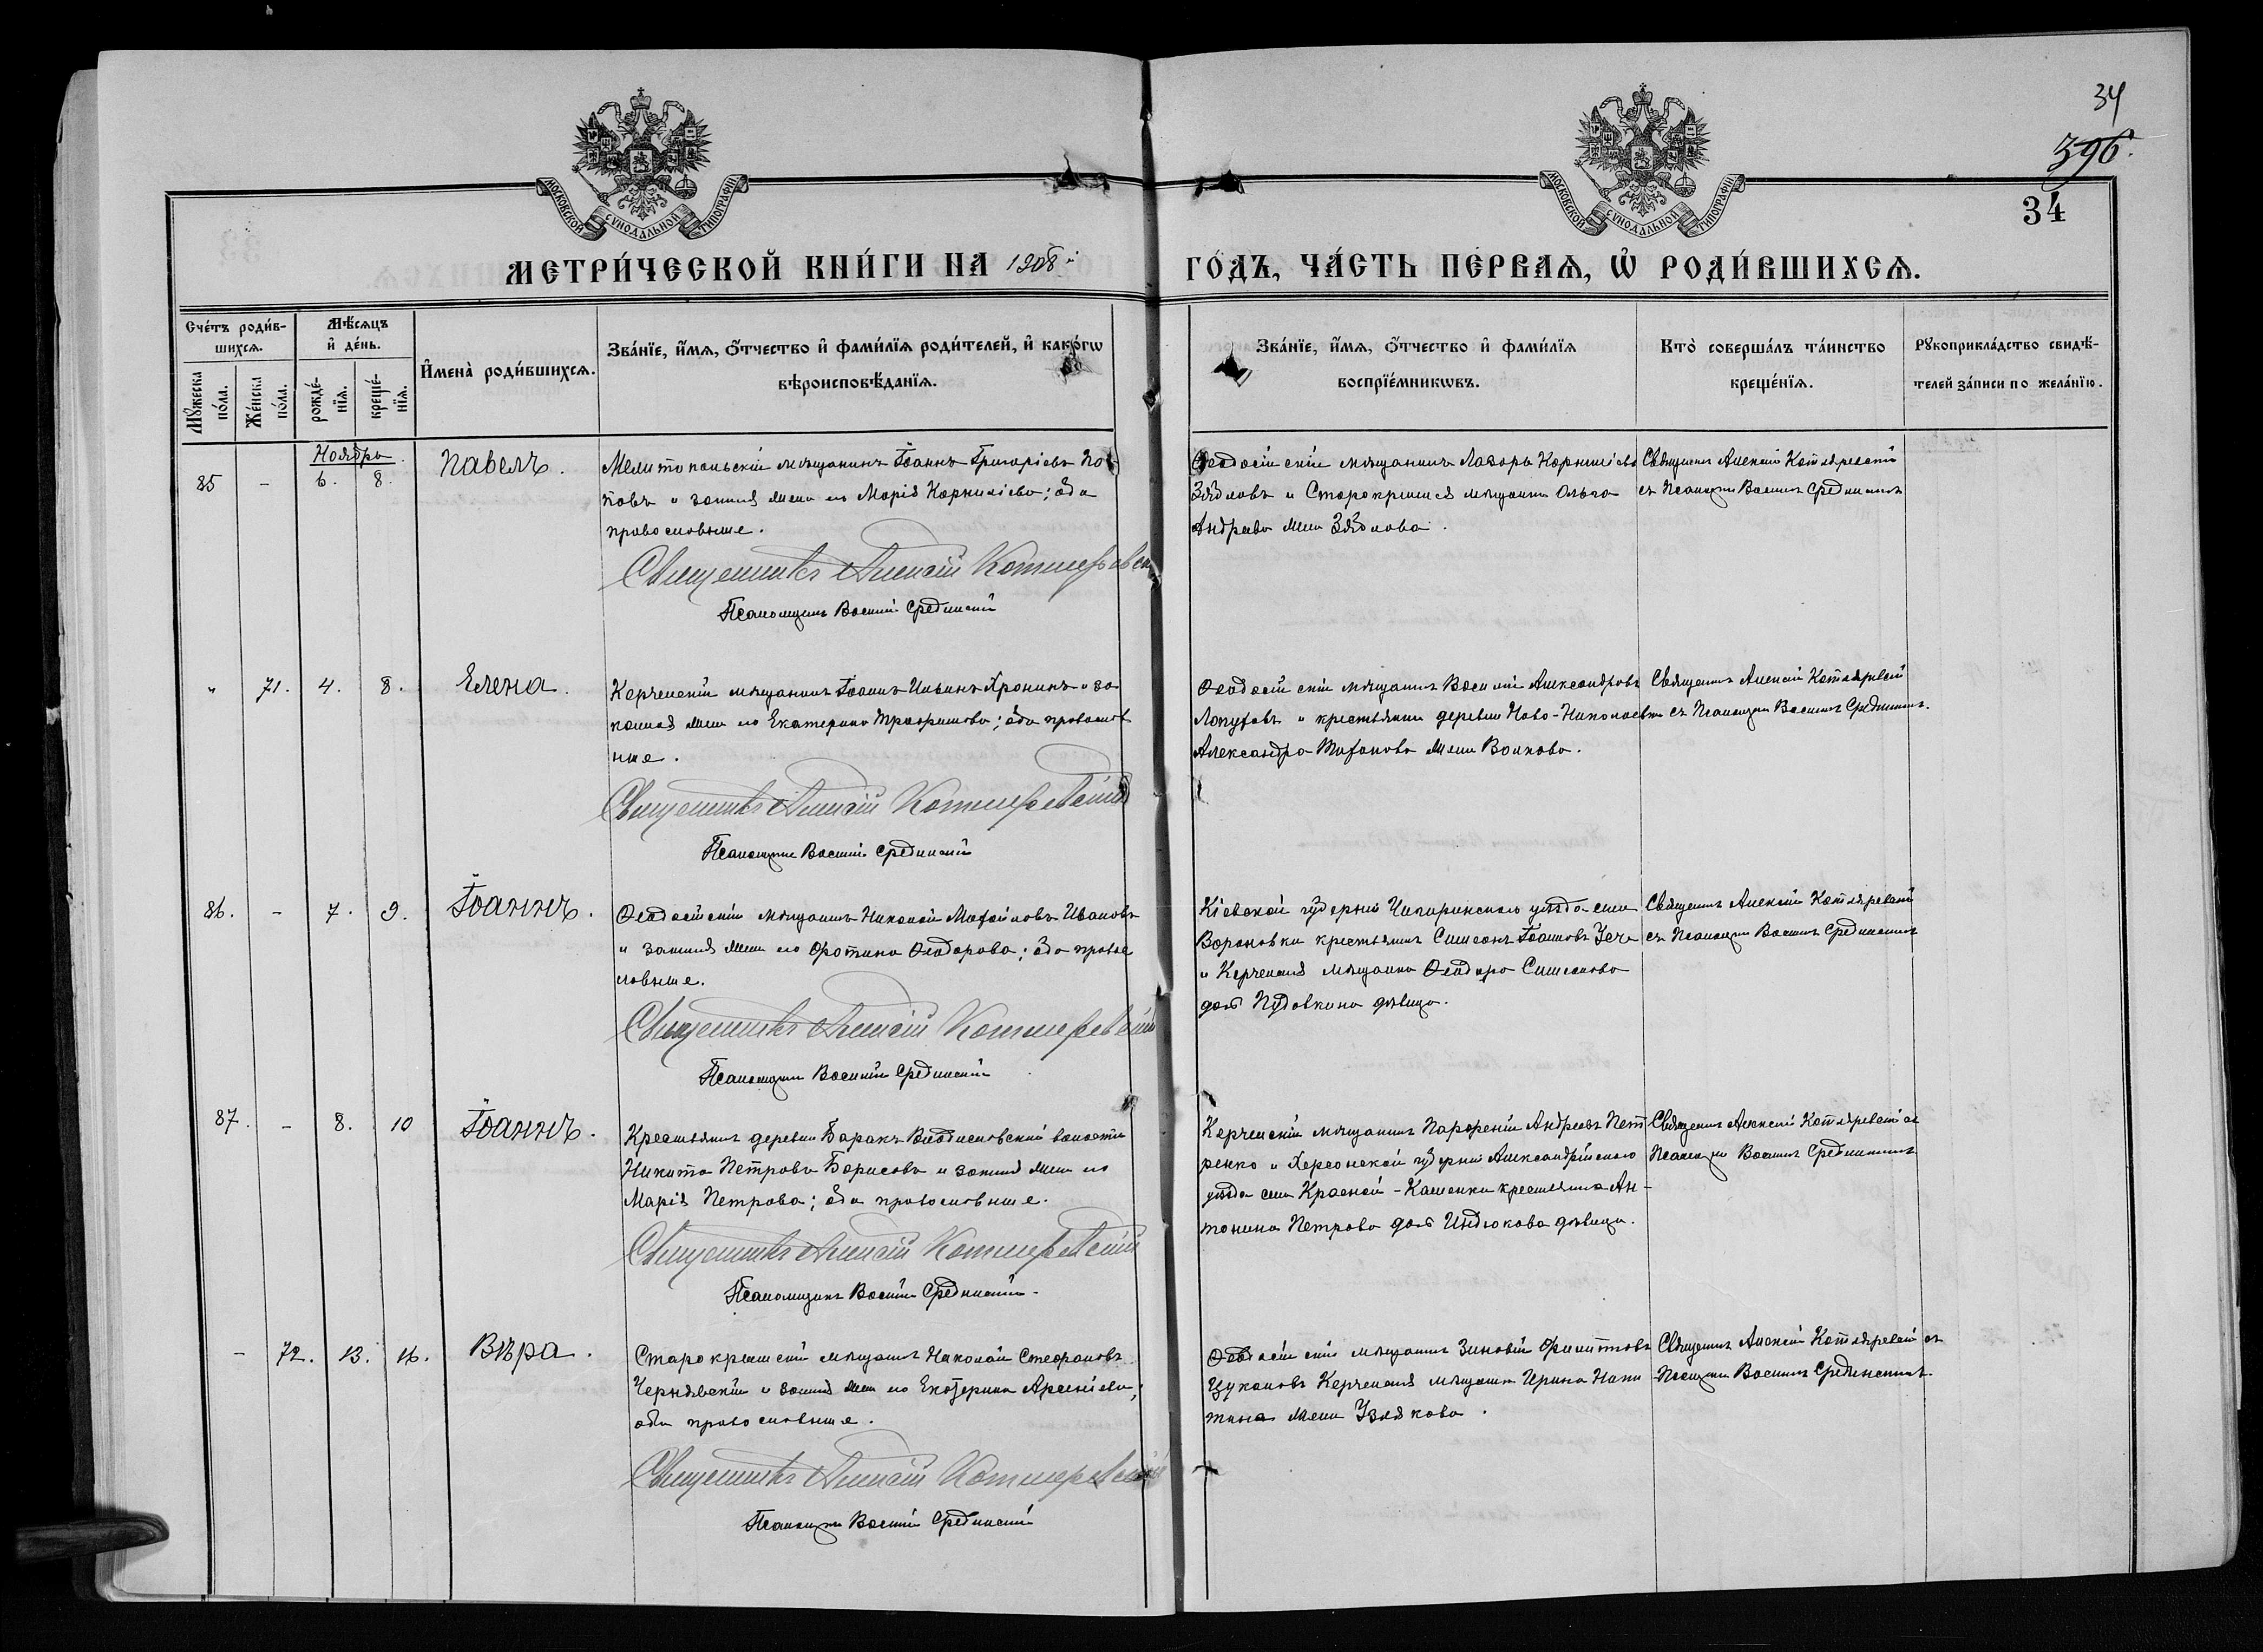 34
396.
34
МОСКОВСКОЙ СѴНОДАЛЬНОЙ ТИПОГРАФІИ.
МОСКОВСКОЙ СѴНОДАЛЬНОЙ ТИПОГРАФІИ.
МЕТРИ́ЧЕСКОЙ КНИ́ГИ НА 1908й ГО́ДЪ, ЧА́СТЬ ПЕ́РВАѦ, Ѽ РОДИ́ВШИХСѦ.
Сче́тъ роди́в-
шихсѧ.
Мꙋ́жеска по́ла.
Же́нска по́ла.
Мѣ́сѧцъ
и҆ де́нь.
рожде́-
нїѧ.
креще́-
нїѧ.
И҆мена̀ роди́вшихсѧ.
Зва́нїе, и҆́мѧ, ѻ҆́тчество и҆ фами́лїѧ роди́телей, и҆ како́гѡ
вѣроисповѣ́данїѧ.
Зва́нїе, и҆́мѧ, ѻ҆́тчество и҆ фами́лїѧ
воспрїе́мникѡвъ.
Кто̀ соверша́лъ та́инство
креще́нїѧ.
Рꙋкоприкла́дство свидѣ́-
телей за́писи по жела́нїю.
Ноябрь
85 - 6. 8. Павелъ.
Мелитопольскій мѣщанинъ Іоаннъ Григоріевъ По
повъ и законная жена его Марія Корниліева; оба
православные.
Священникъ Алексій Котляревскій
Псаломщикъ Василій Срединскій
Ѳеодосійскій мѣщанинъ Лазарь Корниліевъ
Зябловъ и Старокрымская мѣщанка Ольга
Андреева жена Зяблова.
Священникъ Алексій Котляревскій
съ Псаломщ. Василіемъ Срединскимъ
" 71. 4. 8. Елена.
Керченскій мѣщанинъ Іоаннъ Ильинъ Хронинъ и за
конная жена его Екатерина Трофимова; оба православ
ные.
Священникъ Алексій Котляревскій
Псаломщикъ Василій Срединскій
Ѳеодосійскій мѣщанинъ Василій Александровъ
и крестьянка деревни Ново-Николаевки
Александра жена Волкова.
Священникъ Алексій Котляревскій
съ Псаломщ. Василіемъ Срединскимъ.
86. - 7. 9. Іоаннъ.
Ѳеодосійскій мѣщанинъ Николай Михайловъ Ивановъ
и законная жена его Фотина Ѳеодорова; оба правос
лавные.
Священникъ Алексій Котляревскій
Псаломщикъ Василій Срединскій
Кіевской губерніи Чигиринскаго уѣзда села
Вороновки крестьянинъ Симеонъ Іоанновъ
и Керченская мѣщанка Ѳеодора Симеонова
дочь Пудовкина дѣвица.
Священникъ Алексій Котляревскій
съ Псаломщ. Василіемъ Срединскимъ
87. - 8. 10 Іоаннъ.
Крестьянинъ деревни Баракъ Владиславской волости
Никита Петровъ Борисовъ и законная жена его
Марія Петрова; оба православные.
Священникъ Алексій Котляревскій
Псаломщикъ Василій Срединскій.
Керченскій мѣщанинъ Парфеній Андреевъ Пет
ренко и Херсонской губерніи Александрійскаго
уѣзда села Красной-Каменки крестьянка Ан-
тонина Петрова дочь Индюкова дѣвица.
Священникъ Алексій Котляревскій съ
Псаломщ. Василіемъ Срединскимъ
- 72. 13. 16. Вѣра.
Старокрымскій мѣщанинъ Николай Стефановъ
Чернявскій и законная жена его Екатерина Арсеніева;
оба православные.
Священникъ Алексій Котляревскій
Псаломщикъ Василій Срединскій
Ѳеодосійскій мѣщанинъ Зиновій Филипповъ
Цукановъ Керченская мѣщанка Ирина Ники
тина жена Узякова.
Священникъ Алексій Котляревскій съ
Псаломщ. Василіемъ Срединскимъ.